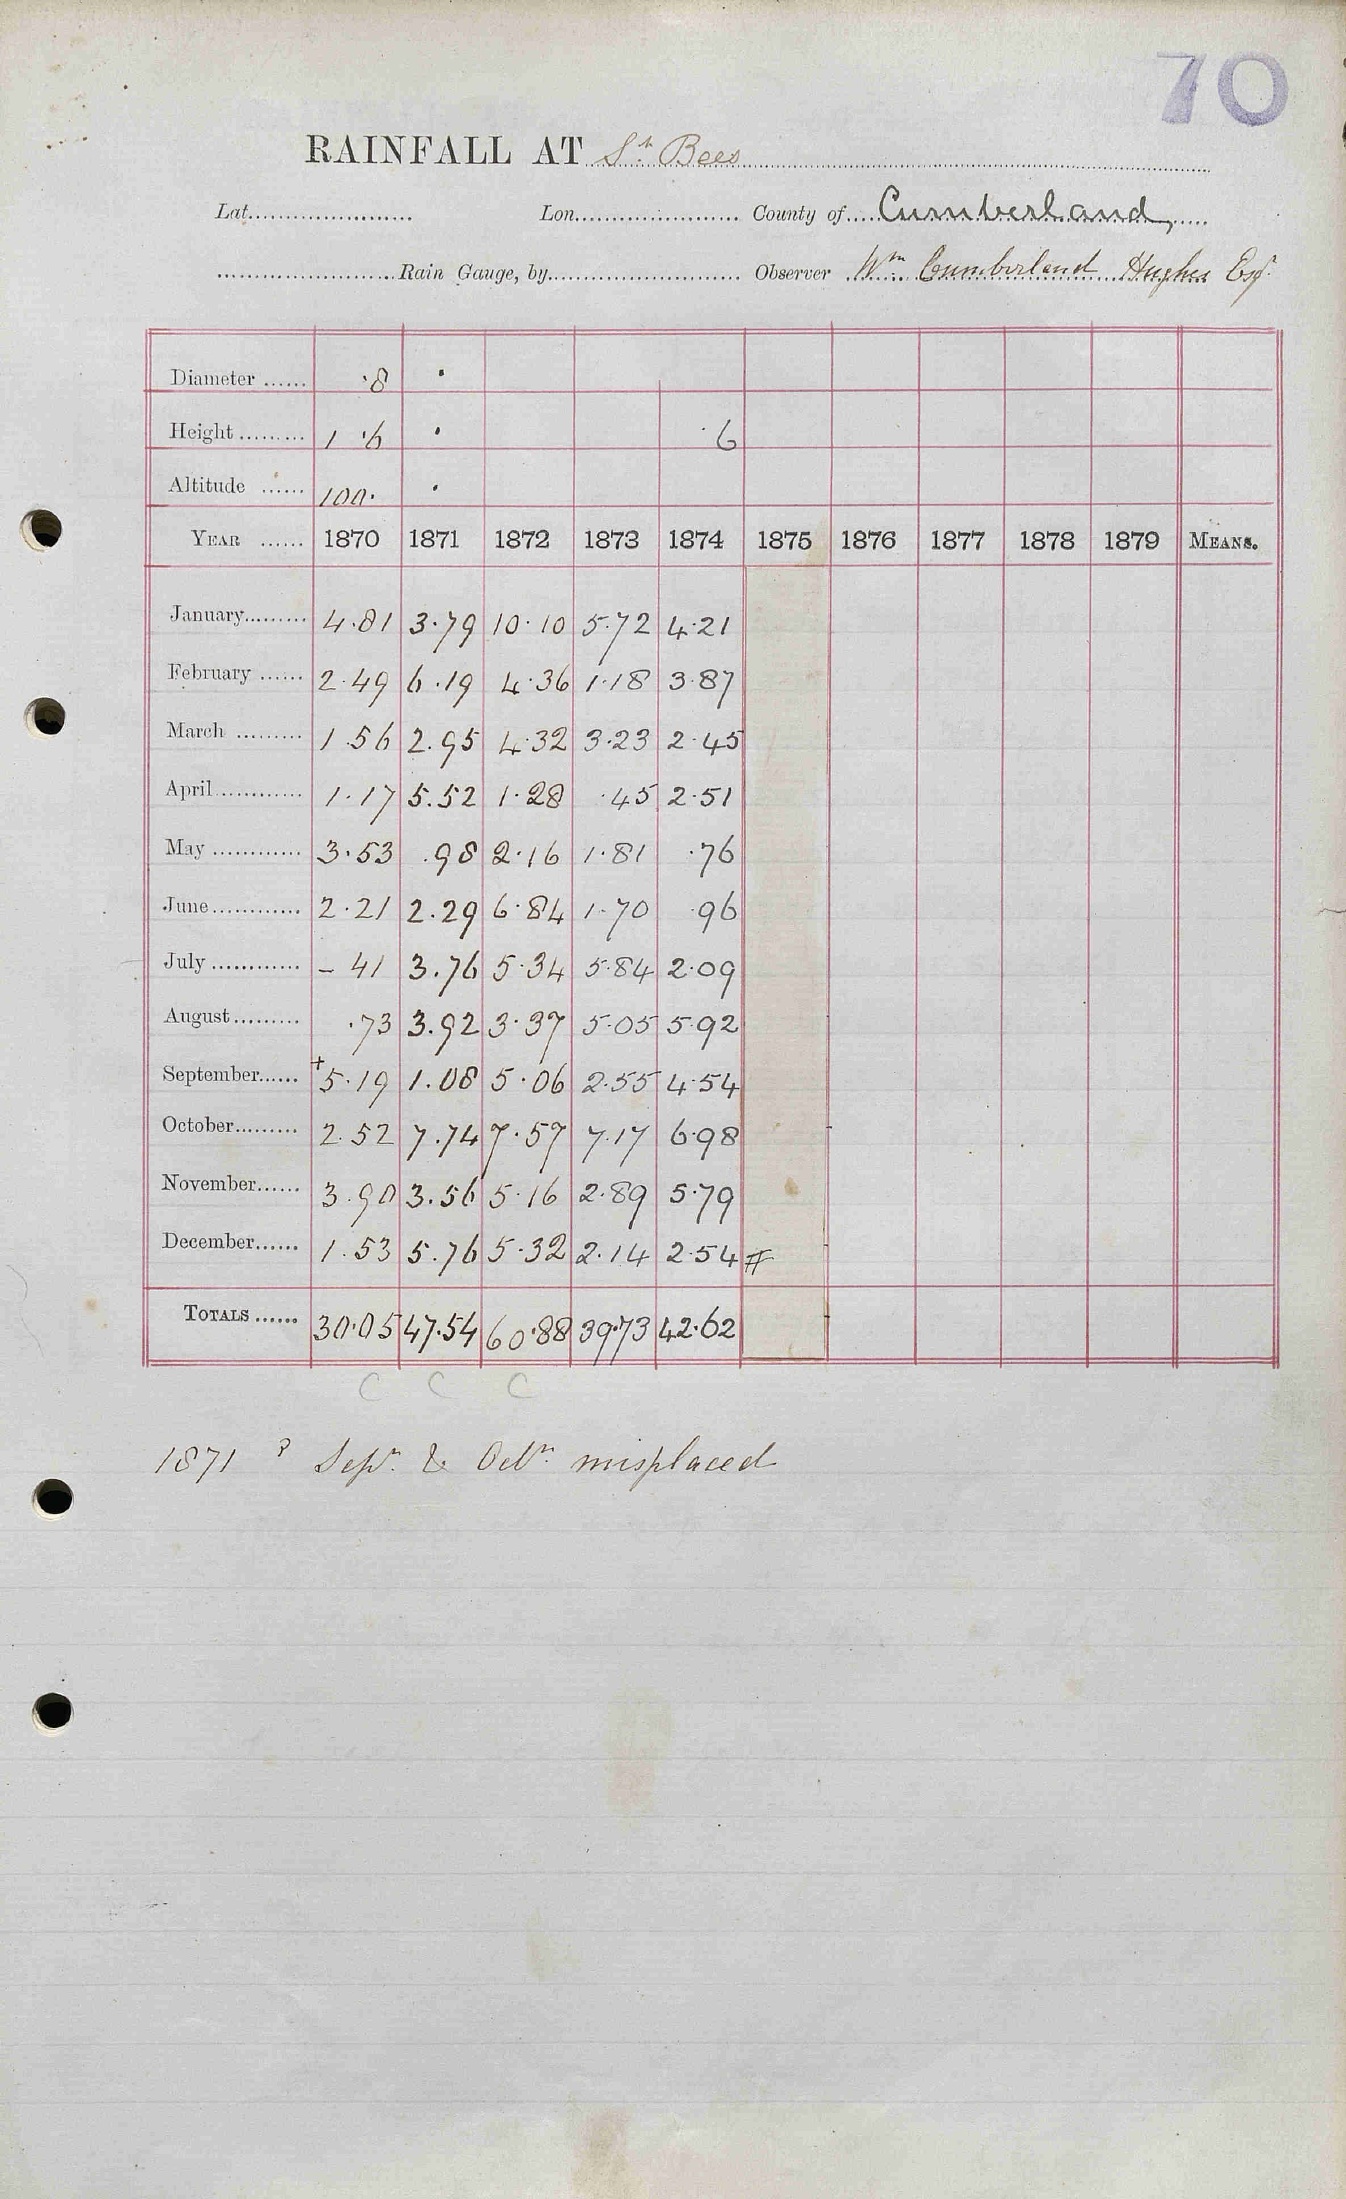 70
RAINFALL AT St Bees
Lat...................... Lon...................... County of.... Cumberland,
........................Rain Gauge, by......................... Observer Wm Cumberland Hughes Esqr
Diameter ...... ·8 ·
Height ......... 1 ·6 · ·6
Altitude ...... 100· ·
YEAR ...... 1870 1871 1872 1873 1874 1875 1876 1877 1878 1879 MEANS.
January......... 4·81 3·79 10·10 5·72 4·21
February ...... 2·49 6·19 4·36 1·18 3·87
March ......... 1·56 2·95 4·32 3·23 2·45
April............ 1·17 5.52 1·28 ·45 2·51
May ............ 3·53 .98 2·16 1·81 ·76
June............ 2·21 2.29 6·84 1·70 ·96
July ............ – 41 3.76 5·34 5·84 2·09
August......... ·73 3.92 3·37 5·05 5·92
September...... +5·19 1.08 5·06 2·55 4·54
October......... 2·52 7.74 7·57 7·17 6·98
November...... 3·90 3.56 5·16 2·89 5·79
December...... 1·53 5.76 5·32 2·14 2·54 #
TOTALS ...... 30·05 47.54 60·88 39·73 42·62
C C C
1871 ? Sepr. & Octr. misplaced